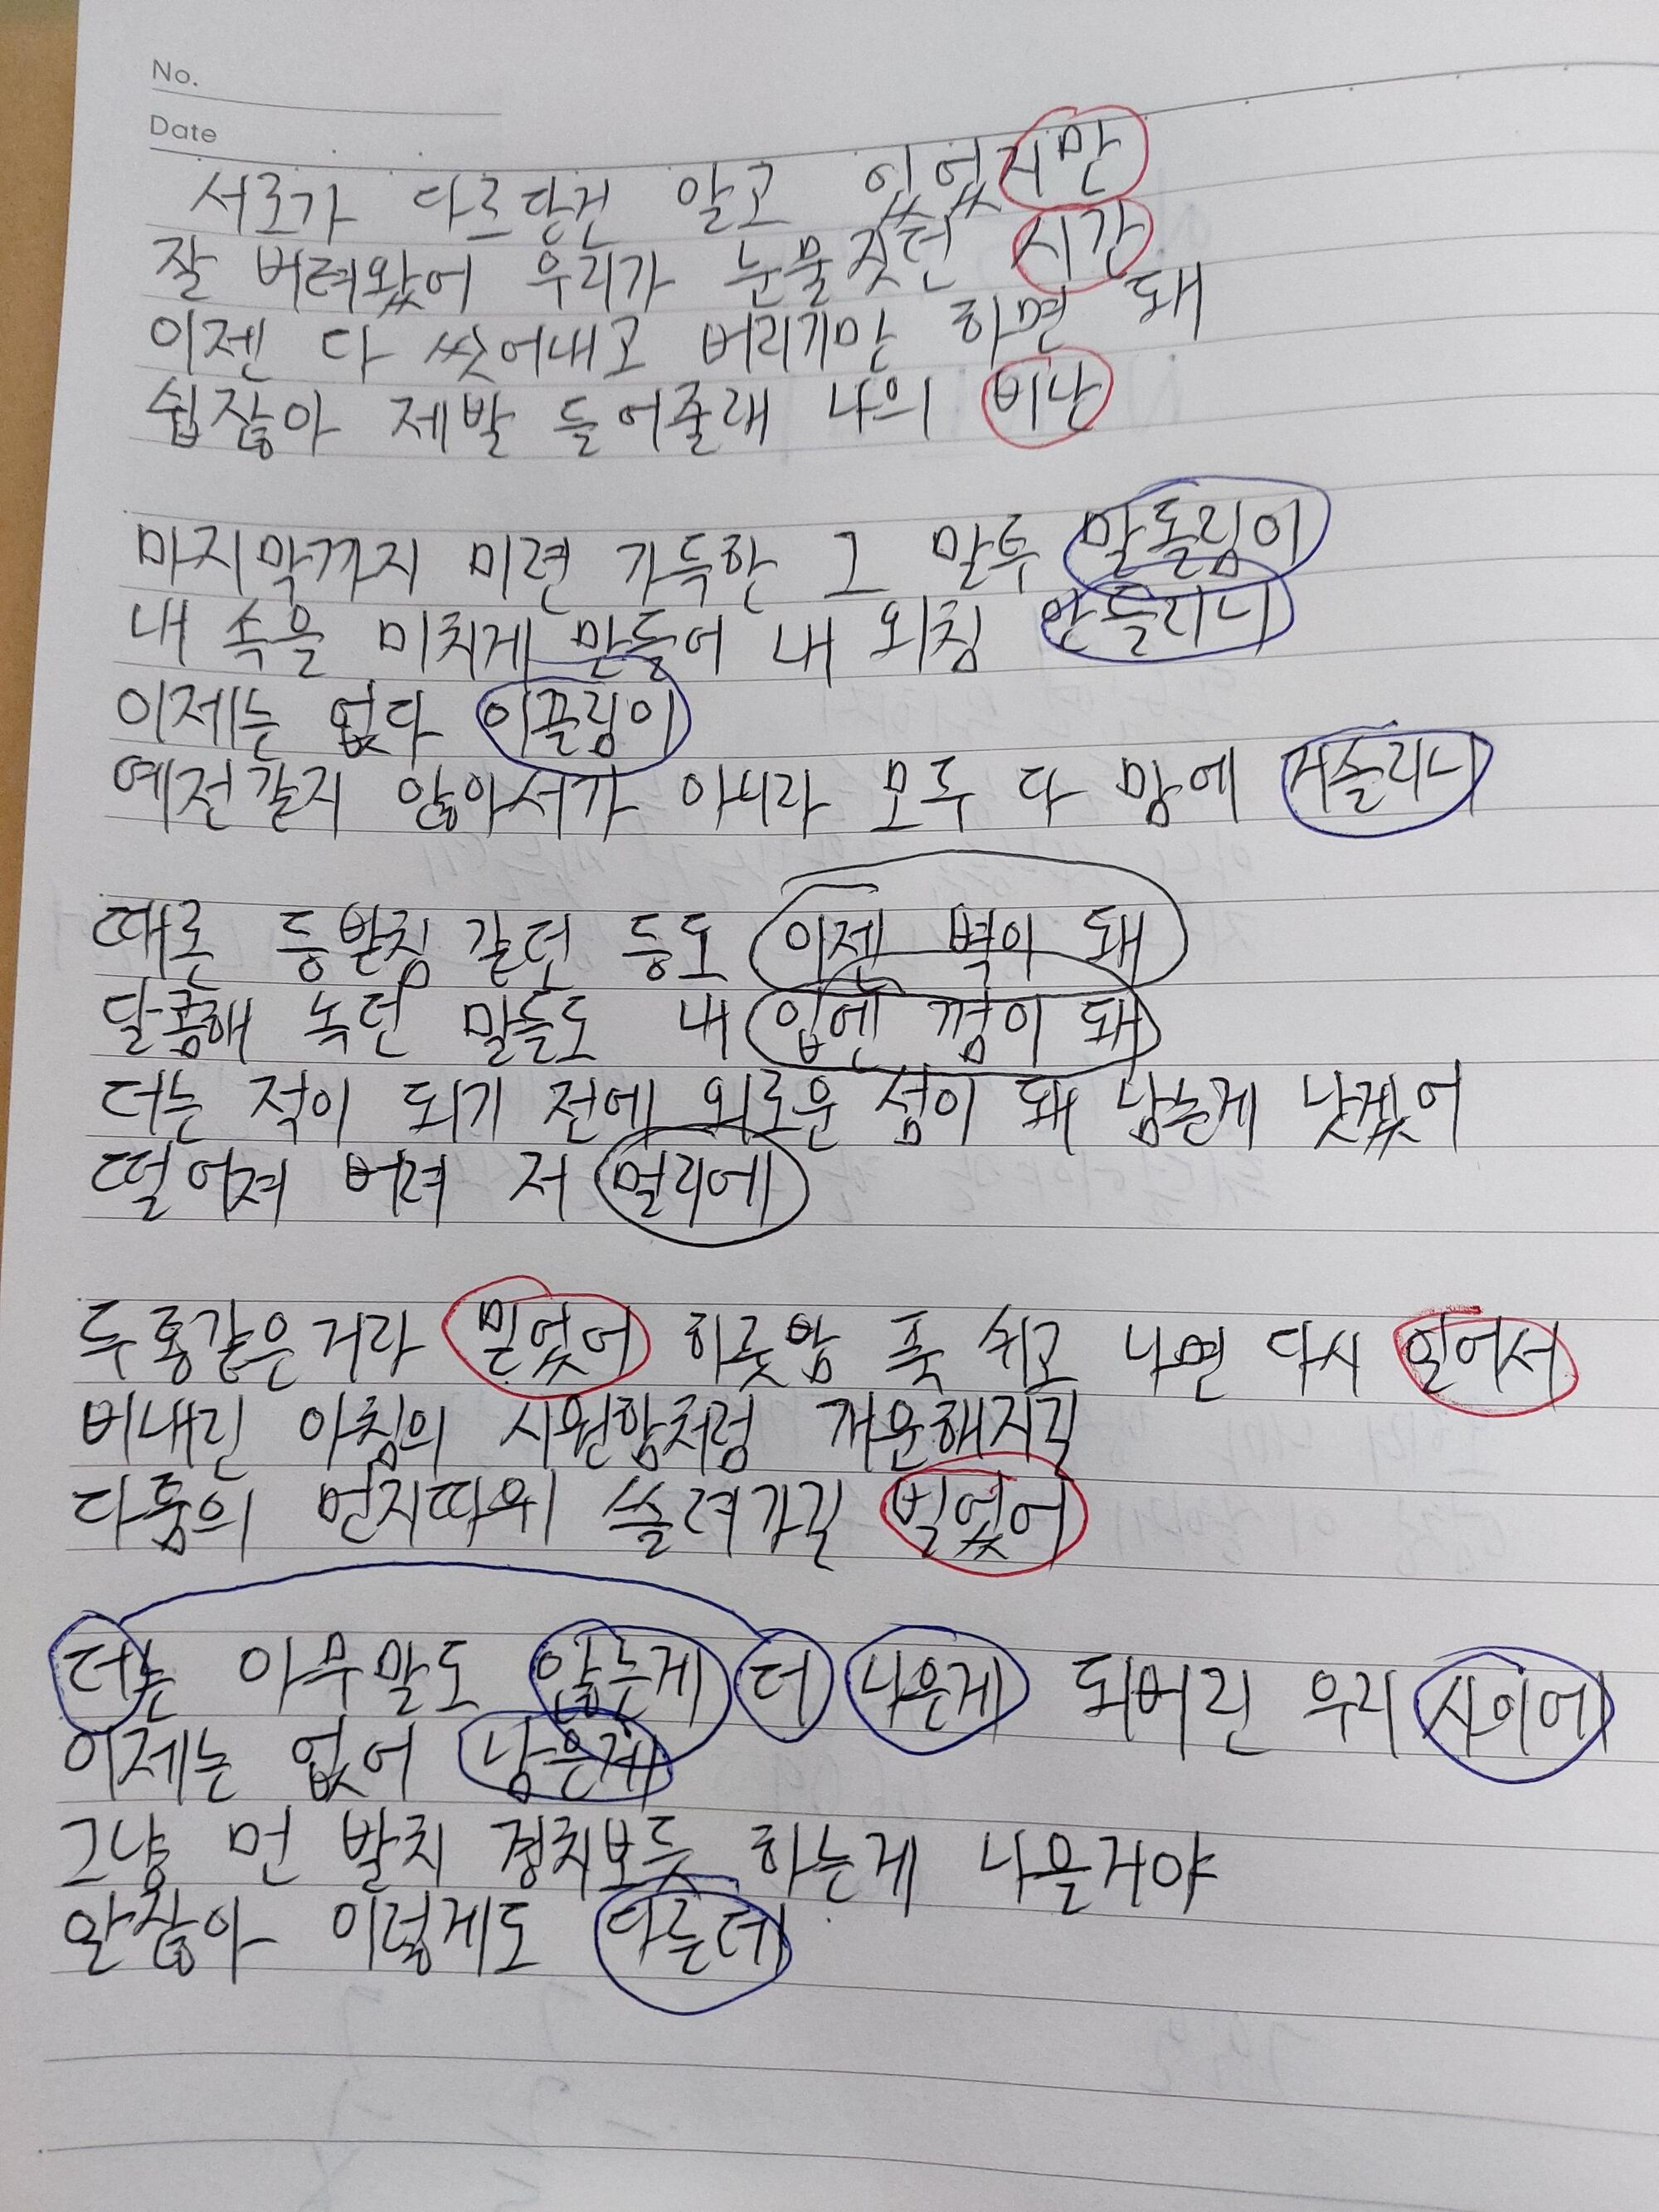 No.
Date
서로가 다르단건 알고 있었지만
잘 버려왔어 우리가 눈물짓던 시간
이젠 다 씻어내고 버리기만 하면 돼
쉽잖아 제발 들어줄래 나의 비난
마지막까지 미련 가득한 그 말투 말돌림이
내 속을 미치게 만들어 내 외침 안들리니
이제는 없다 이끌림이
예전같지 않아서가 아니라 모두 다 맘에 거슬리니
때론 등받침 같던 등도 이젠 벽이 돼
달콤해 녹던 말들도 내 입엔 껌이 돼
더는 적이 되기 전에 외로운 섬이 돼 남는게 낫겠어
떨어져 버려 저 멀리에
두통같은거라 믿었어 하룻밤 푹 쉬고 나면 다시 일어서
비내린 아침의 시원함처럼 개운해지길
다툼의 먼지따위 쓸려가길 빌었어
더는 아무말도 않는게 더 나은게 되버린 우리 사이에
이제는 없어 남은게
그냥 먼 발치 경치보듯 하는게 나을거야
알잖아 이렇게도 다른데